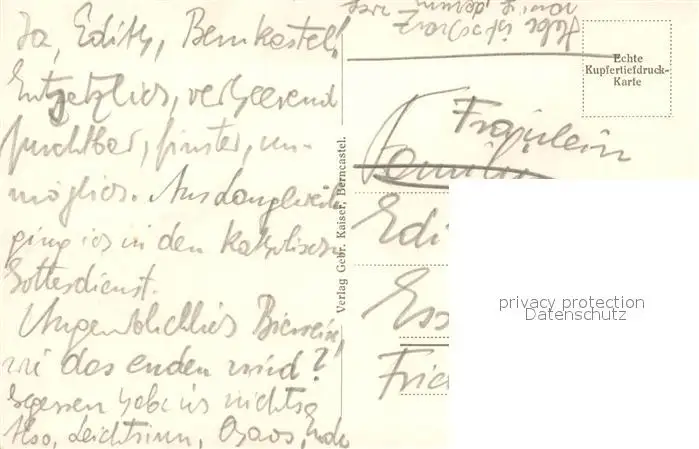 Ja, Edith, Bernkastel!
Entsetzlich, verheerend
furchtbar, finster, un-
möglich. Aus Langweile
ging ich in den katholischen
Gottesdienst.
Augenblicklich Bierreise,
wie das enden wird?
Gegessen habe ich nichts
Also, Leichtsinn, Chaos, Ende
Verlag Gebr. Kaiser, Berncastel.
ist schwarz
Echte
Kupfertiefdruck-
Karte
Fräulein
Familie
Edi
Ess
Frie
privacy protection
Datenschutz